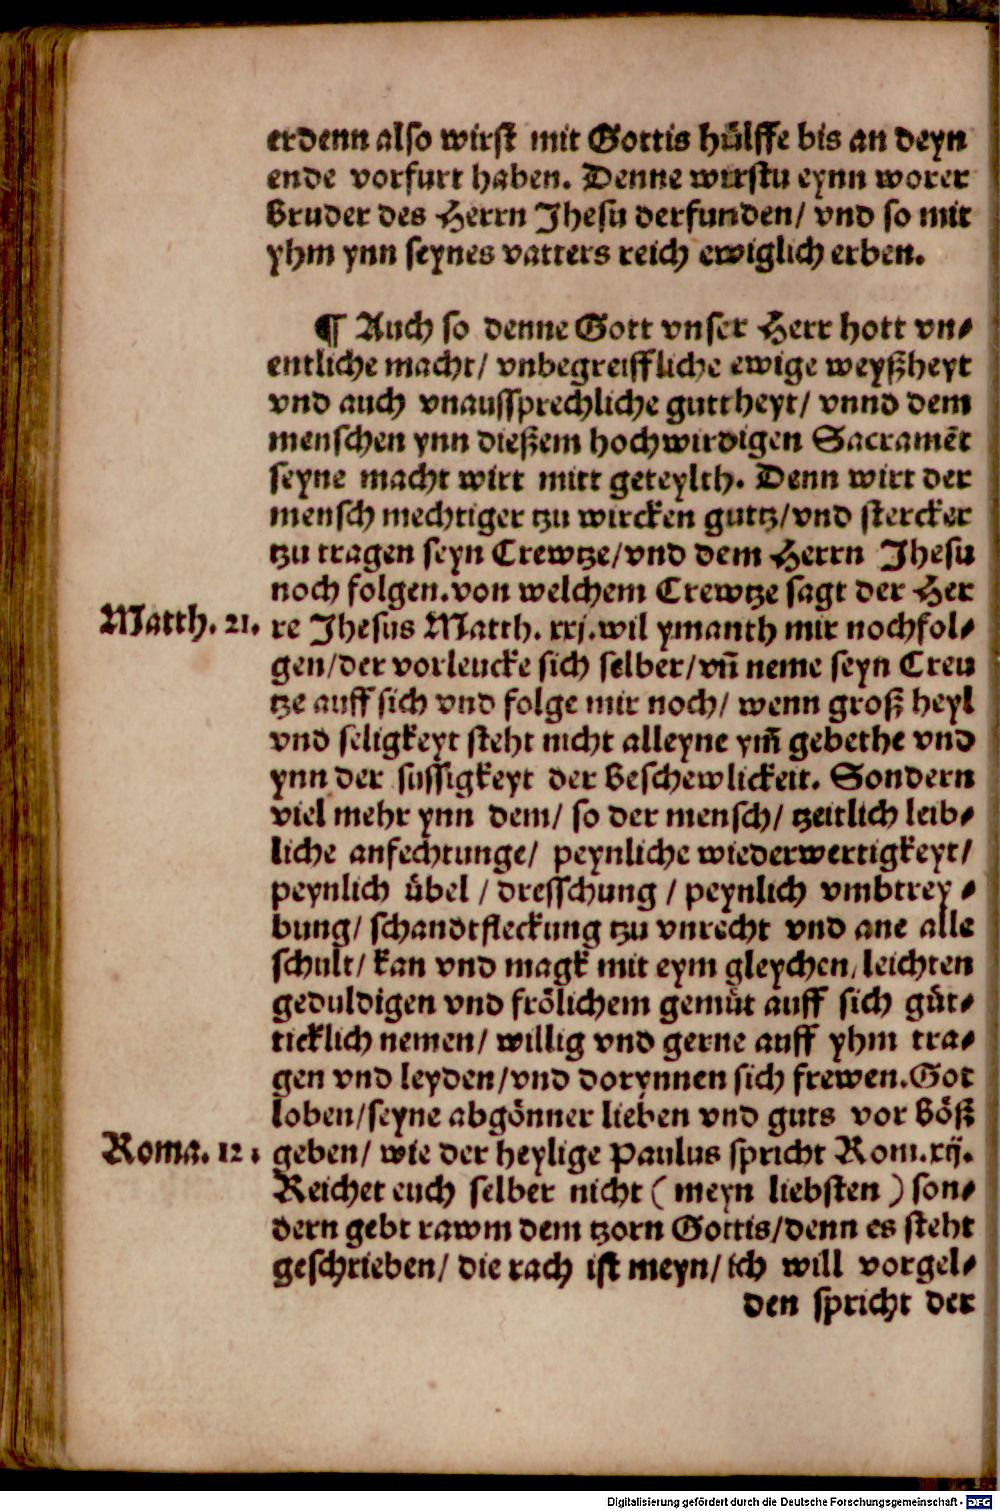 erdenn also wirst mit Gottis hülffe bis an deyn
ende vorfurt haben. Denne wirstu eynn worer
Bruder des Herrn Jhesu derfunden/ vnd so mit
yhm ynn seynes vatters reich ewiglich erben.
¶ Auch so denne Gott vnser Herr hott vn⸗
entliche macht/ vnbegreiffliche ewige weyßheyt
vnd auch vnaussprechliche guttheyt/ vnnd dem
menschen ynn dießem hochwirdigen Sacramēt
seyne macht wirt mitt geteylth. Denn wirt der
mensch mechtiger tzu wircken guttz/vnd stercker
tzu tragen seyn Crewtze/vnd dem Herrn Jhesu
noch folgen.von welchem Crewtze sagt der Her
Matth. 21. re Jhesus Matth. xxj.wil ymanth mir nochfol⸗
gen/der vorleucke sich selber/vn̄ neme seyn Creu
tze auff sich vnd folge mir noch/ wenn groß heyl
vnd seligkeyt steht nicht alleyne ym̄ gebethe vnd
ynn der sussigkeyt der Beschewlickeit. Sondern
viel mehr ynn dem/ so der mensch/ tzeitlich leib⸗
liche anfechtunge/ peynliche wiederwertigkeyt/
peynlich übel / dresschung / peynlich vmbtrey ⸗
bung/ schandtfleckung tzu vnrecht vnd ane alle
schult/ kan vnd magk mit eym gleychen/ leichten
geduldigen vnd frölichem gemüt auff sich güt⸗
ticklich nemen/ willig vnd gerne auff yhm tra⸗
gen vnd leyden/vnd dorynnen sich frewen.Got
loben/seyne abgönner lieben vnd guts vor Böß
Roma. 12. geben/ wie der heylige Paulus spricht Rom.xij.
Reichet euch selber nicht ( meyn liebsten ) son⸗
dern gebt rawm dem tzorn Gottis/denn es steht
geschrieben/ die rach ist meyn/ ich will vorgel⸗
den spricht der
Digitalisierung gefördert durch die Deutsche Forschungsgemeinschaft - DFG